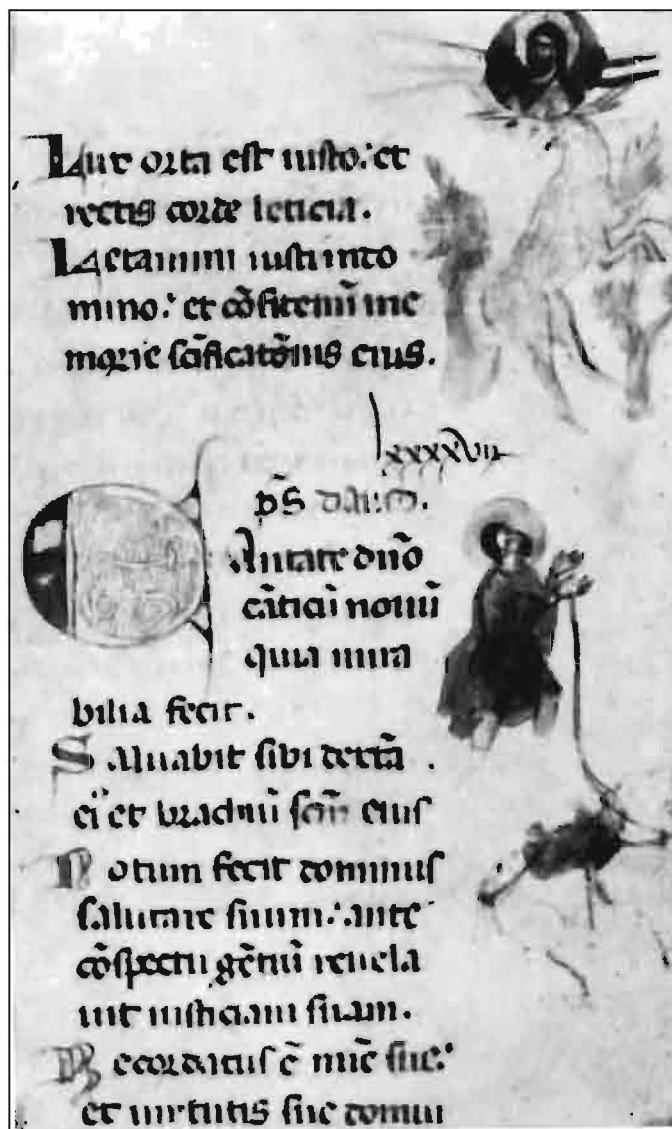 Lux orta est iusto: et
rectis corde leticia.
Laetamini iusti in do
mino: et cōfitemī me
morie scīficatōnis eius.
lxxxxvii
pS̄ dauid.
Cantate dn̄o
cāticū nouū
quia mira
bilia fecit.
Saluabit sibi dextā
ei᾽ et brachiū scm̄ eius
Notum fecit dominus
salutare suum: ante
cōspectu gētiū reuela
uit iusticiam suam.
Recordatus ē mīe sue:
et uirtutis sue domui